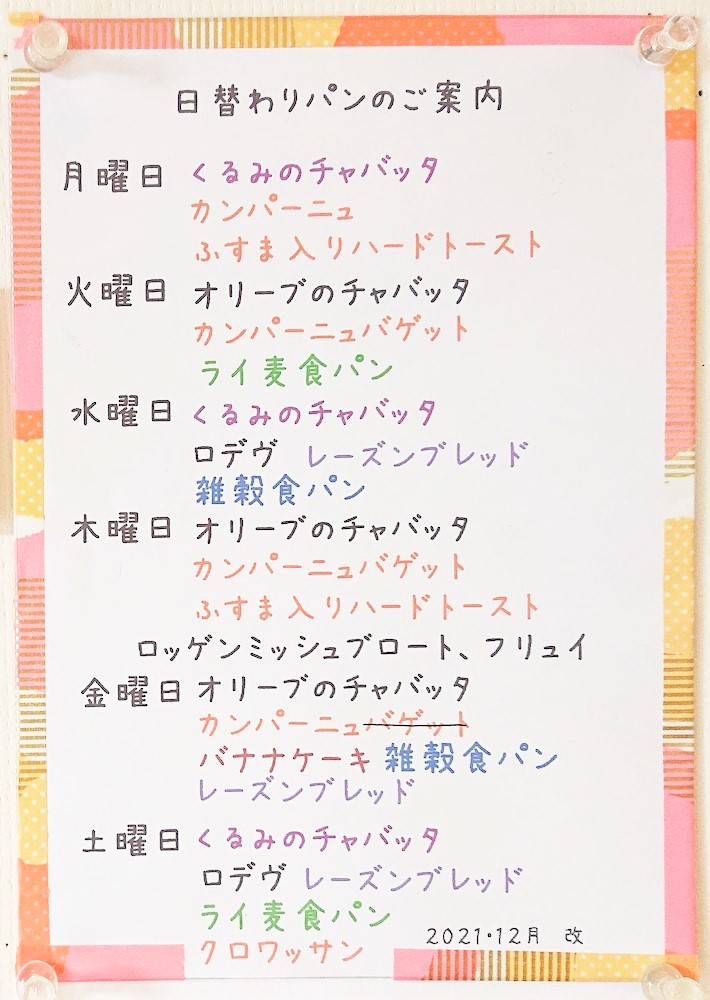 日替わりパンのご案内
月曜日 くるみのチャバッタ
カンパーニュ
ふすま入りハードトースト
火曜日 オリーブのチャバッタ
カンパーニュバゲット
ライ麦食パン
水曜日 くるみのチャバッタ
ロデヴ レーズンブレッド
雑穀食パン
木曜日 オリーブのチャバッタ
カンパーニュバゲット
ふすま入りハードトースト
ロッゲンミッシュブロート、フリュイ
金曜日 オリーブのチャバッタ
カンパーニュバゲット
バナナケーキ 雑穀食パン
レーズンブレッド
土曜日 くるみのチャバッタ
ロデヴ レーズンブレッド
ライ麦食パン
クロワッサン
2021・12月 改